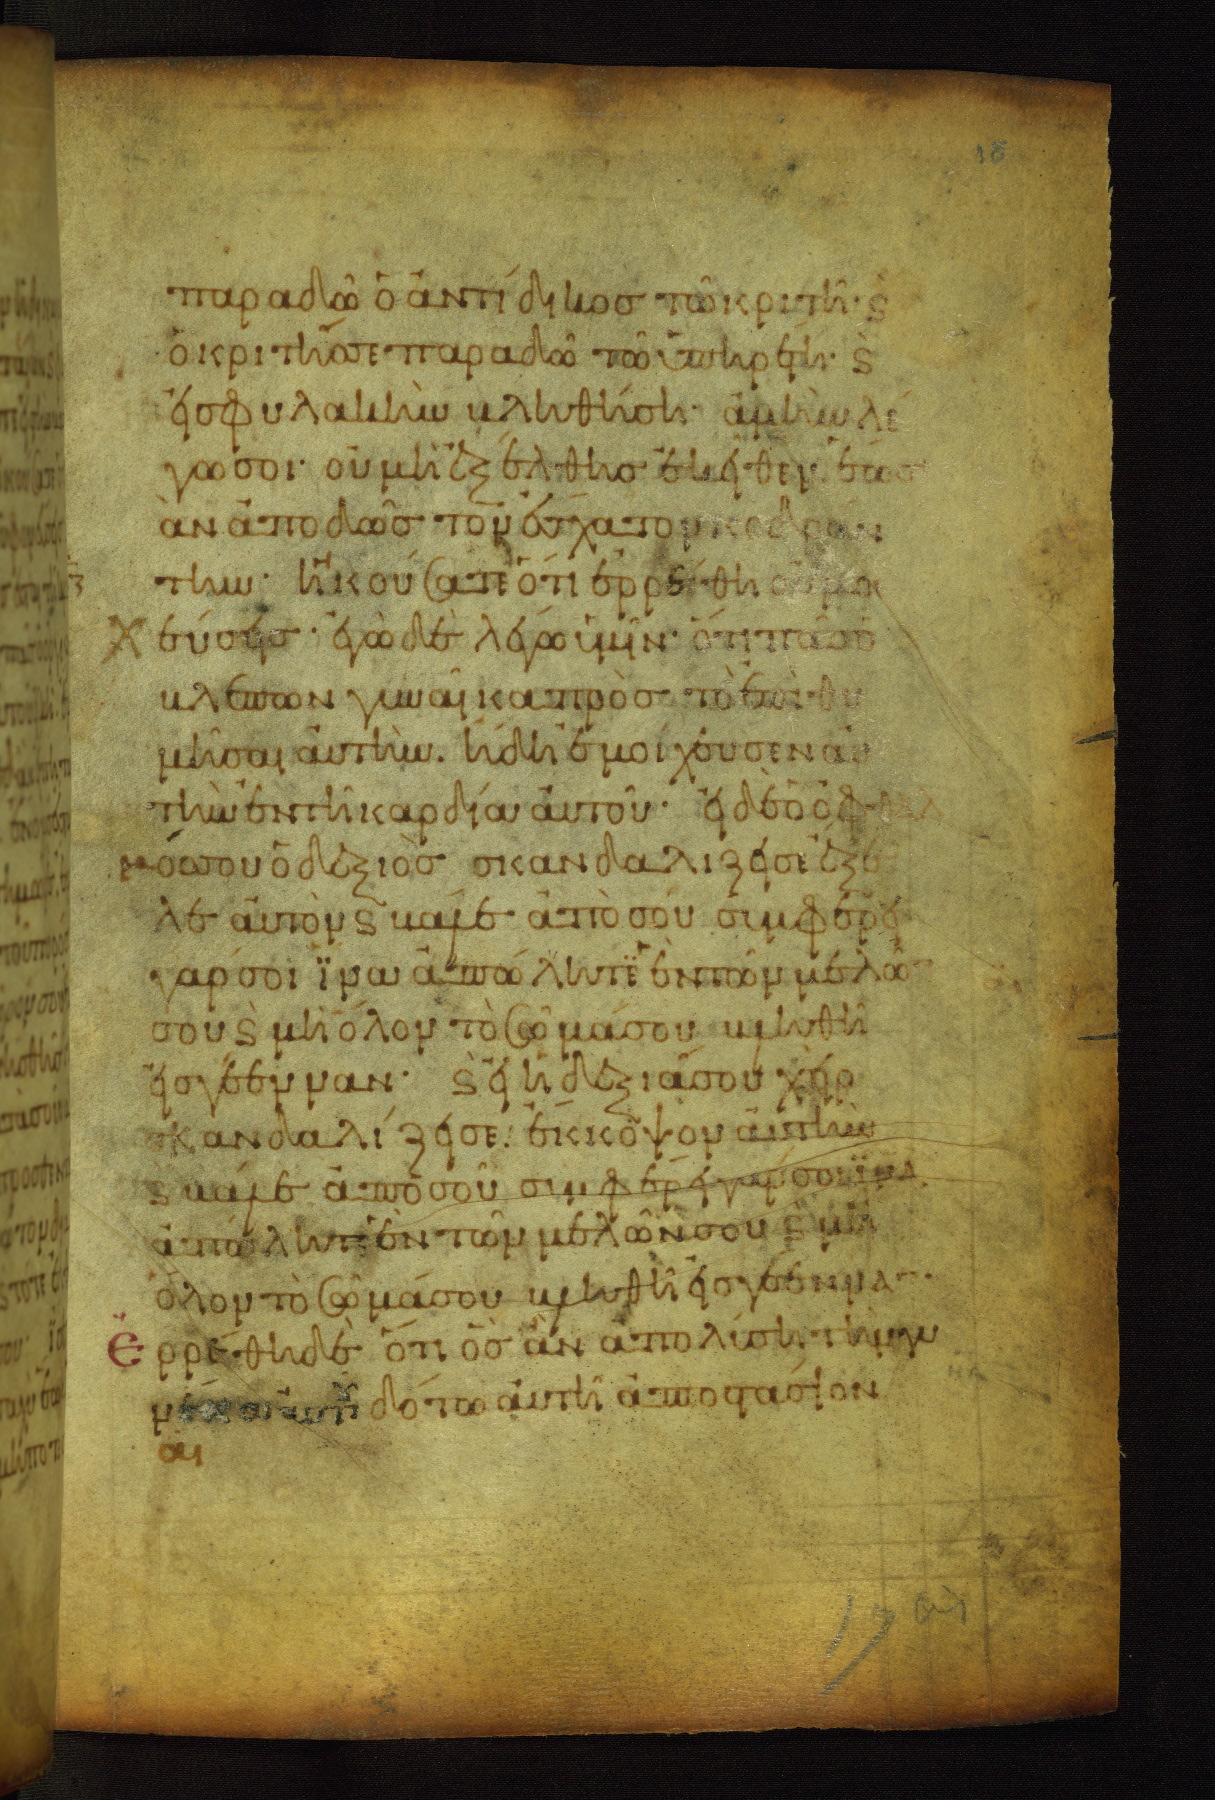 παραδῶ ὁ ἀντίδικοσ τῶ κριτῆ· ϛ
ὁ κριτήσ σε παραδῶ τῶ ὑπηρέτη· ϛ
ἐσ φυλακὴν κληθήση· ἀμὴν λέ
γω σοι· οὐ μὴ ἐξέλθησ ἐκεῖθεν ἕωσ
ἀν ἀποδῶσ τὸν ἔσχατον κοδραν
την· ἠκούσατε ὅτι ἐρρέθη οὐ μοι
χεύσεισ· ἐγὼ δὲ λέγω ὑμῖν· ὅτι πᾶσ ὁ
κλέπων γυναίκα πρὸσ τὸ ἐπιθυ
μῆσαι ἀυτὴν. ἤδη ἐμοίχευσεν ἀυ
τὴν ἐν τῆ καρδία ἀυτοῦ· εἰ δὲ ὁ ὀφθαλ
μόσ σου ὁ δεξιὸσ σκανδαλιζει σε ἔξε
λε ἀυτὸν ϛ κάλε ἀπὸ σού συμφέρει
γαρ σοι ϊνα ἀπόλητε ἐν τῶν μελῶ
σου ϛ μὴ ὅλον τὸ σῶμά σου κληθῆ
εἰσ γέενναν· ϛ εἰ ἡ δεξιά σου χεὶρ
σκανδαλίζει σε. ἔκκοψον ἀυτὴν
ϛ κάλε ἀπὸ σοῦ συμφέρει γάρ σοι ϊνα
ἀπόληται ἐν τῶν μελῶν σου ϛ μὴ
ὅλον τὸ σῶμά σου κληθῆ εἰσ γέενναν·
Ἐρρέθη δὲ ὅτι ὃσ ἂν ἀπολύση τὴν γυ
δότω ἀυτῆ ἀποστάσιον